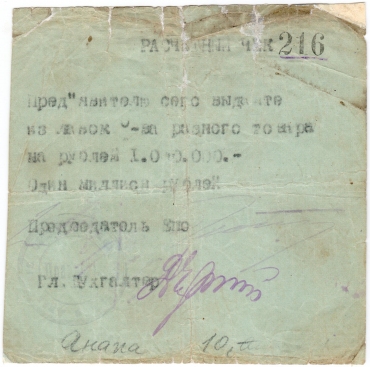 РАСЧЕТНЫЙ ЧЕК 216
Пред"явителю сего выдайте
из лавок О-ва разного товара
на рублей I.000.000.-
Один миллион рублей
Председатель
Гл. Бухгалтер
Анапа 10,